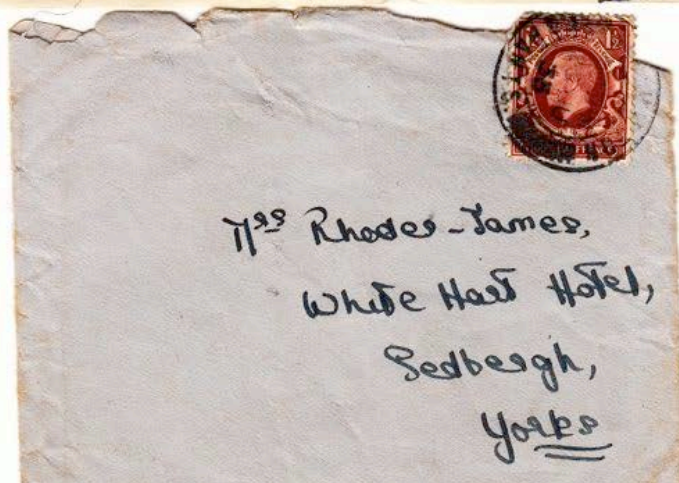 1½
Mrs Rhodes-James,
White Hart Hotel,
Sedbergh,
Yorks